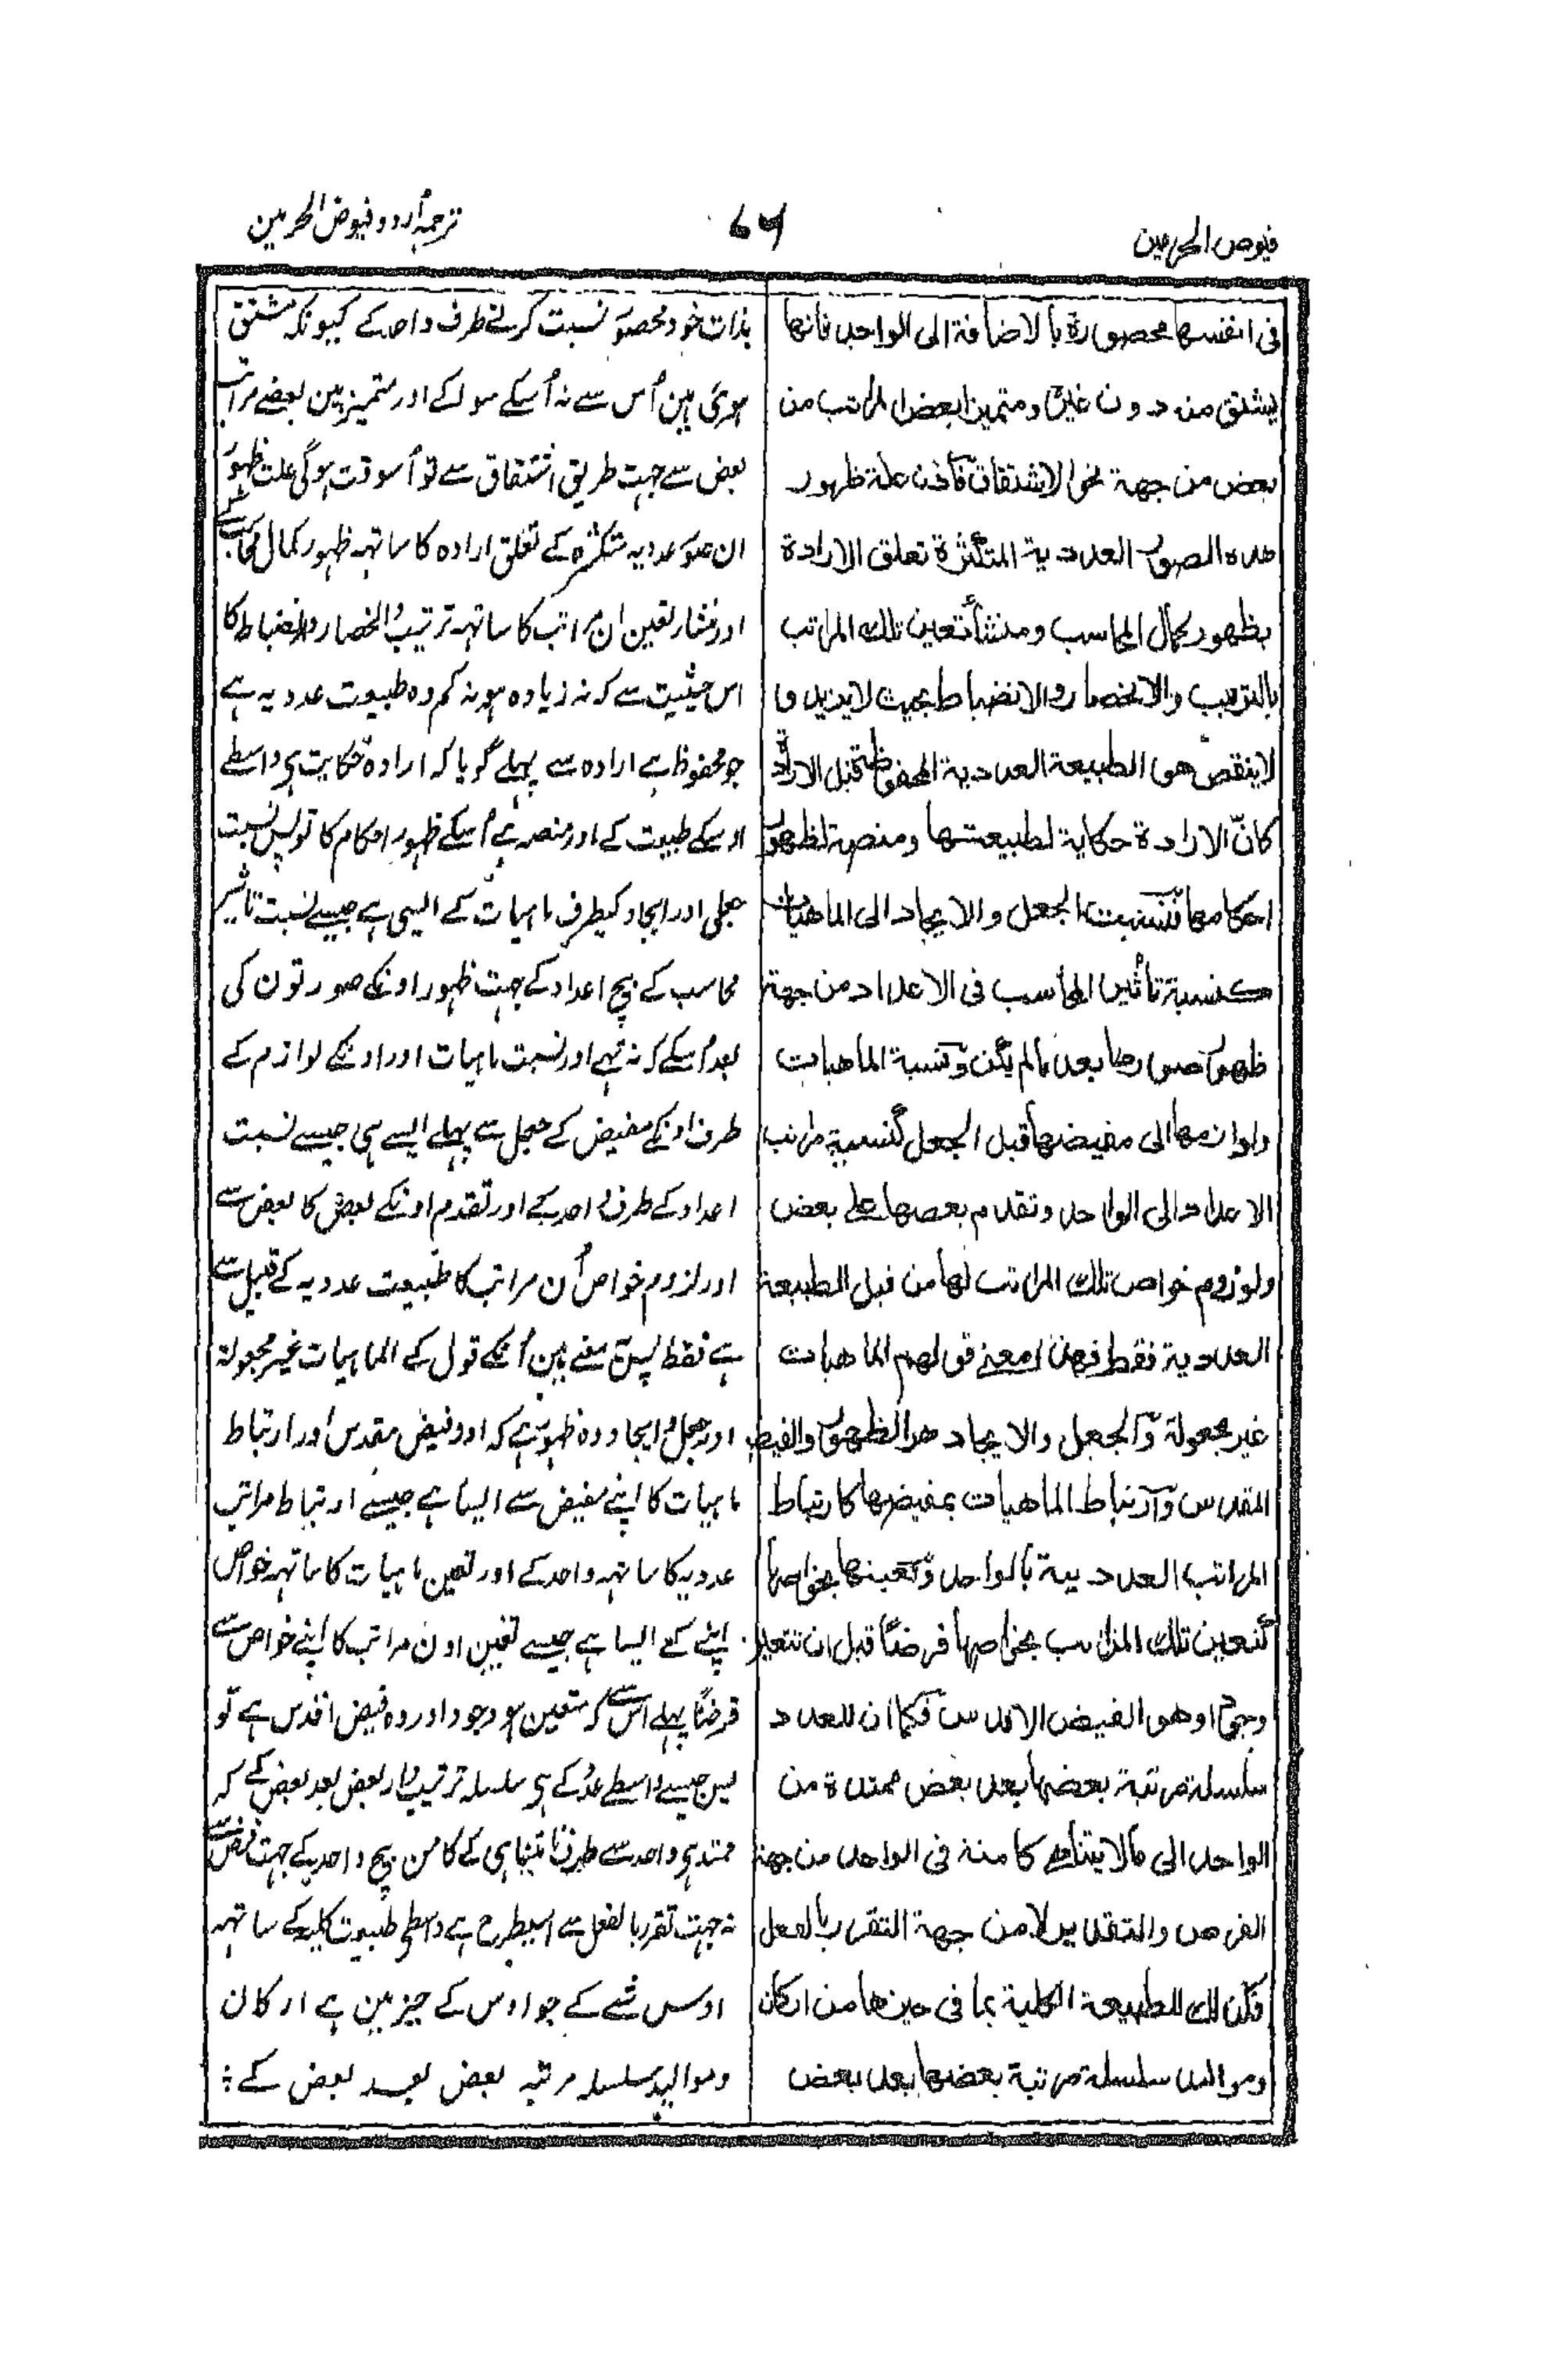 فیوض الحرمین
۷۶
ترجمۂ اردو فیوض الحرمین
فی انفسها محصورة بالاضافة الی الواحد فانها
یشتق منه دون غیره و متمیزا بعض المراتب من
بعض من جهة نحو الاشتقاق فاذن علة ظهور
هذه الصور العددیة المتکثرة تعلق الارادة
بظهور کمال المحاسب ومنشأ تعین تلک المراتب
بالترتیب والانحصار والانضباط بحیث لایزید و
لاینقص هو الطبیعة العددیة المحفوظة قبل الارادة
کان الارادة حکایة لطبیعتها ومنصة لظهور
احکامها فنسبت الجعل والایجاد الی الماهیات
کنسبة تأثیر المحاسب فی الاعداد من جهة
ظهور صورها بعد مالم یکن ونسبة الماهیات
ولوازمها الی مفیضها قبل الجعل کنسبة مراتب
الاعداد الی الواحد وتقدم بعضها علے بعض
ولزوم خواص تلک المراتب لها من قبل الطبیعة
العددیة فقط فهذا معنے قولهم الماهیات
غیر مجعولة والجعل والایجاد هو الظهور والفیض
المقدس وارتباط الماهیات بمفیضها کارتباط
المراتب العددیة بالواحد وتعینها بخواصها
کتعین تلک المراتب بخواصها فرضًا قبل ان تتعین
وجودا وهو الفیض الاقدس فکما ان للعدد
سلسلة مرتبة بعضها بعد بعض ممتدة من
الواحد الی مالایتناهے کامنة فی الواحد من جهة
الفرض والتقدیر لا من جهة التقرر بالفعل
فکذلک للطبیعة الکلیة بما فی حیزها من ارکان
وموالید سلسلة مرتبة بعضها بعد بعض
بذات خود محصور نسبت کرنے طرف واحد کے کیونکہ مشتق
ہوئی ہین اُس سے نہ اُسکے سوا کے اور متمیز ہین بعضے مراتب
بعض سے جہت طریق اشتقاق سے تو اُسوقت ہوگی علت ظہور
ان صور عددیہ متکثرہ کے تعلق ارادہ کا ساتہہ ظہور کمال محاسب کے
اور منشار تعین ان مراتب کا ساتہہ ترتیب و انحصار و انضباط کا
اس حیثیت سے کہ نہ زیادہ ہو نہ کم وہ طبیعت عددیہ ہے
جو محفوظ ہے ارادہ سے پہلے گویا کہ ارادہ حکایت ہے واسطے
اوسکے طبیعت کے اور منصہ ہے اُسکے ظہور احکام کا تو پس نسبت
جعلی اور ایجاد کیطرف ماہیات کے ایسی ہے جیسے نسبت تاثیر
محاسب کے بیچ اعداد کے جہت ظہور اونکے صورتون کی
بعد اُسکے کہ نہ تہے اور نسبت ماہیات اور اونکے لوازم کے
طرف اونکے مفیض کے جعل سے پہلے ایسے ہی جیسے نسبت
اعداد کے طرف واحد کے اور تقدم اونکے بعض کا بعض سے
اور لزوم خواص اُن مراتب کا طبیعت عددیہ کے قبیل سے
ہے فقط پس یہ معنے ہین اُنکے قول کے الماہیات غیر مجعولۃ
اور جعل و ایجاد وہ ظہور ہے کہ او و فیض مقدس اور ارتباط
ماہیات کا اپنے مفیض سے ایسا ہے جیسے ارتباط مراتب
عددیہ کا ساتہہ واحد کے اور تعین ماہیات کا ساتہہ خواص
اپنے کے ایسا ہے جیسے تعین اون مراتب کا اپنے خواص سے
فرضًا پہلے اس سے کہ متعین ہو وجود اور وہ فیض اقدس ہے تو
پس جیسے واسطے عدد کے ہے سلسلہ ترتیب وار بعض بعد بعض کے کہ
ممتد ہے واحد سے طرف نامتناہی کے کامن بیچ واحد کے جہت فرض سے
نہ جہت تقرر بالفعل سے اسیطرح ہے واسطے طبیعت کلیہ کے ساتہہ
اوس شے کے جو اوس کے حیز مین ہے ارکان
وموالید سلسلہ مرتبہ بعض بعد بعض کے ؛